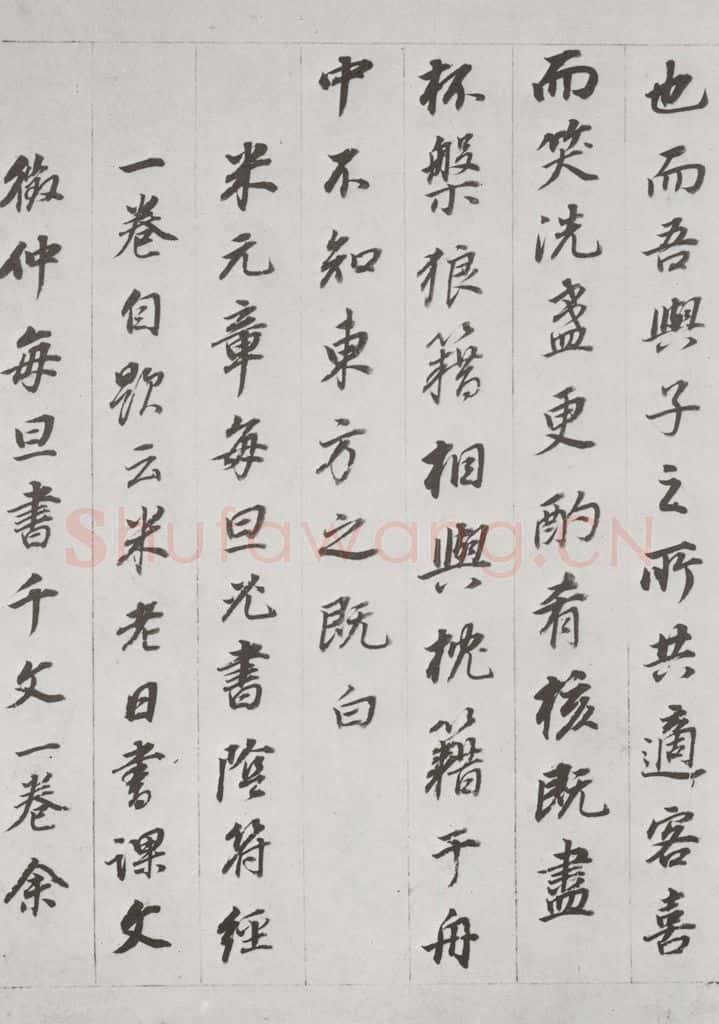 也而吾與子之所共適客喜
而笑洗盞更酌肴核既盡
杯槃狼籍相與枕籍于舟
中不知東方之既白
米元章每旦必書陰符經
一卷自題云米老日書課文
徵仲每旦書千文一卷余
Shufawang.CN